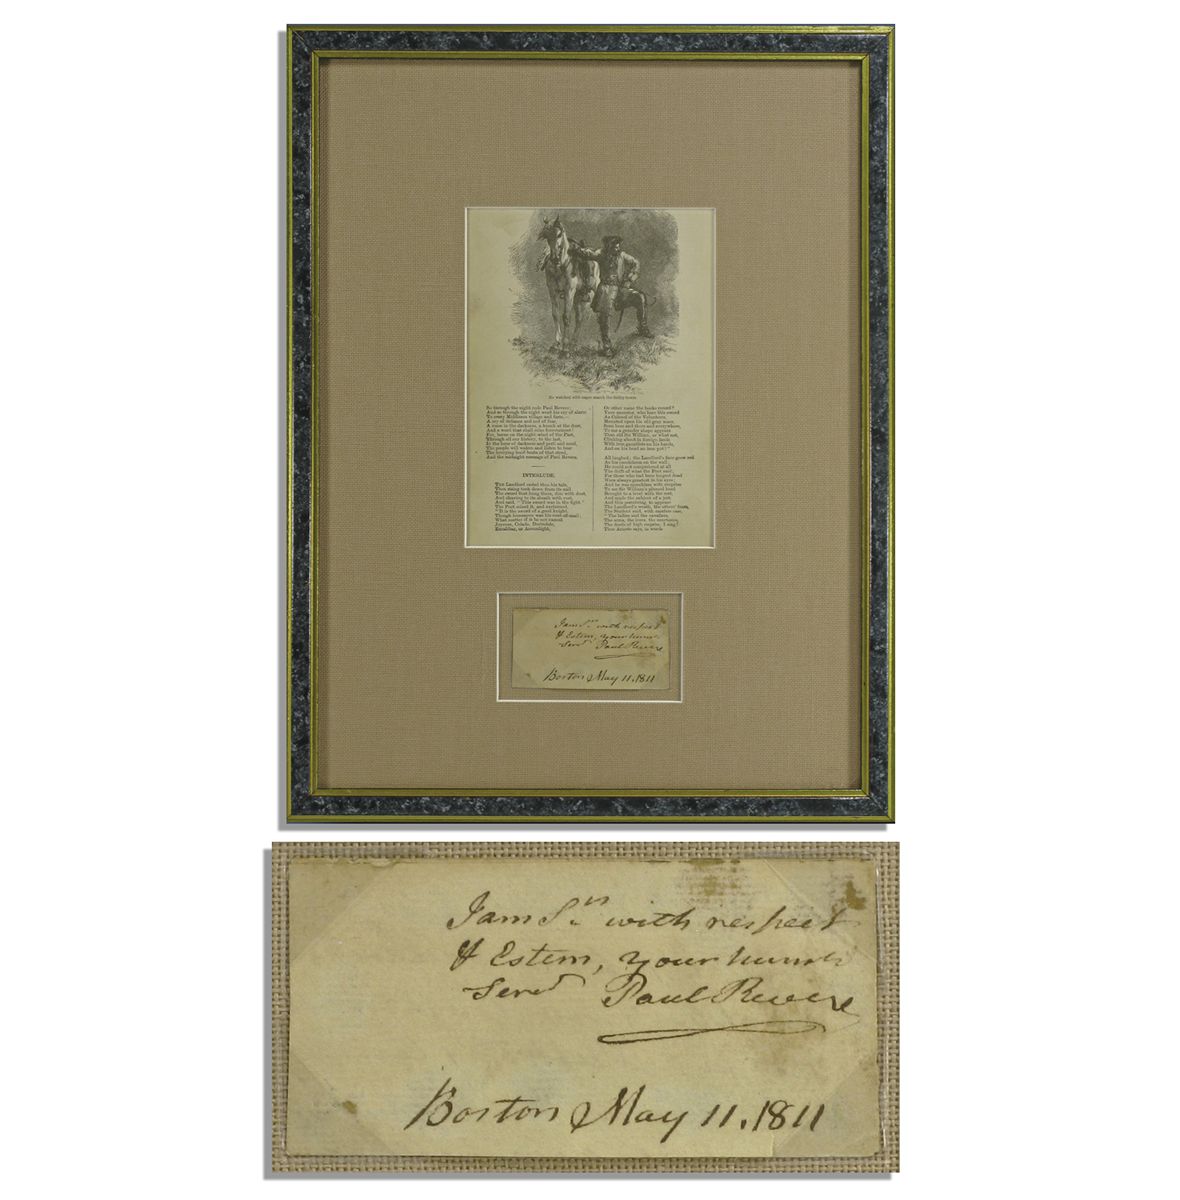 He watched with eager search the belfry-tower.
So through the night rode Paul Revere;
And so through the night went his cry of alarm
To every Middlesex village and farm,—
A cry of defiance and not of fear,
A voice in the darkness, a knock at the door,
And a word that shall echo forevermore!
For, borne on the night-wind of the Past,
Through all our history, to the last,
In the hour of darkness and peril and need,
The people will waken and listen to hear
The hurrying hoof-beats of that steed,
And the midnight message of Paul Revere.
INTERLUDE.
The Landlord ended thus his tale,
Then rising took down from its nail
The sword that hung there, dim with dust,
And cleaving to its sheath with rust,
And said, "This sword was in the fight."
The Poet seized it, and exclaimed,
"It is the sword of a good knight,
Though homespun was his coat-of-mail;
What matter if it be not named
Joyeuse, Colada, Durindale,
Excalibar, or Aroundight,
Or other name the books record?
Your ancestor, who bore this sword
As Colonel of the Volunteers,
Mounted upon his old gray mare,
Seen here and there and everywhere,
To me a grander shape appears
Than old Sir William, or what not,
Clinking about in foreign lands
With iron gauntlets on his hands,
And on his head an iron pot!"
All laughed; the Landlord's face grew red
As his escutcheon on the wall;
He could not comprehend at all
The drift of what the Poet said;
For those who had been longest dead
Were always greatest in his eyes;
And he was speechless with surprise
To see Sir William's plumed head
Brought to a level with the rest,
And made the subject of a jest.
And this perceiving, to appease
The Landlord's wrath, the others' fears,
The Student said, with careless ease,
"The ladies and the cavaliers,
The arms, the loves, the courtesies,
The deeds of high emprise, I sing!
Thus Ariosto says, in words
I am Sir with respect
& Estem, your humb
Servt Paul Revere
Boston May 11.1811
I am Sir with respect
& Estem, your humb
Servt Paul Revere
Boston May 11.1811